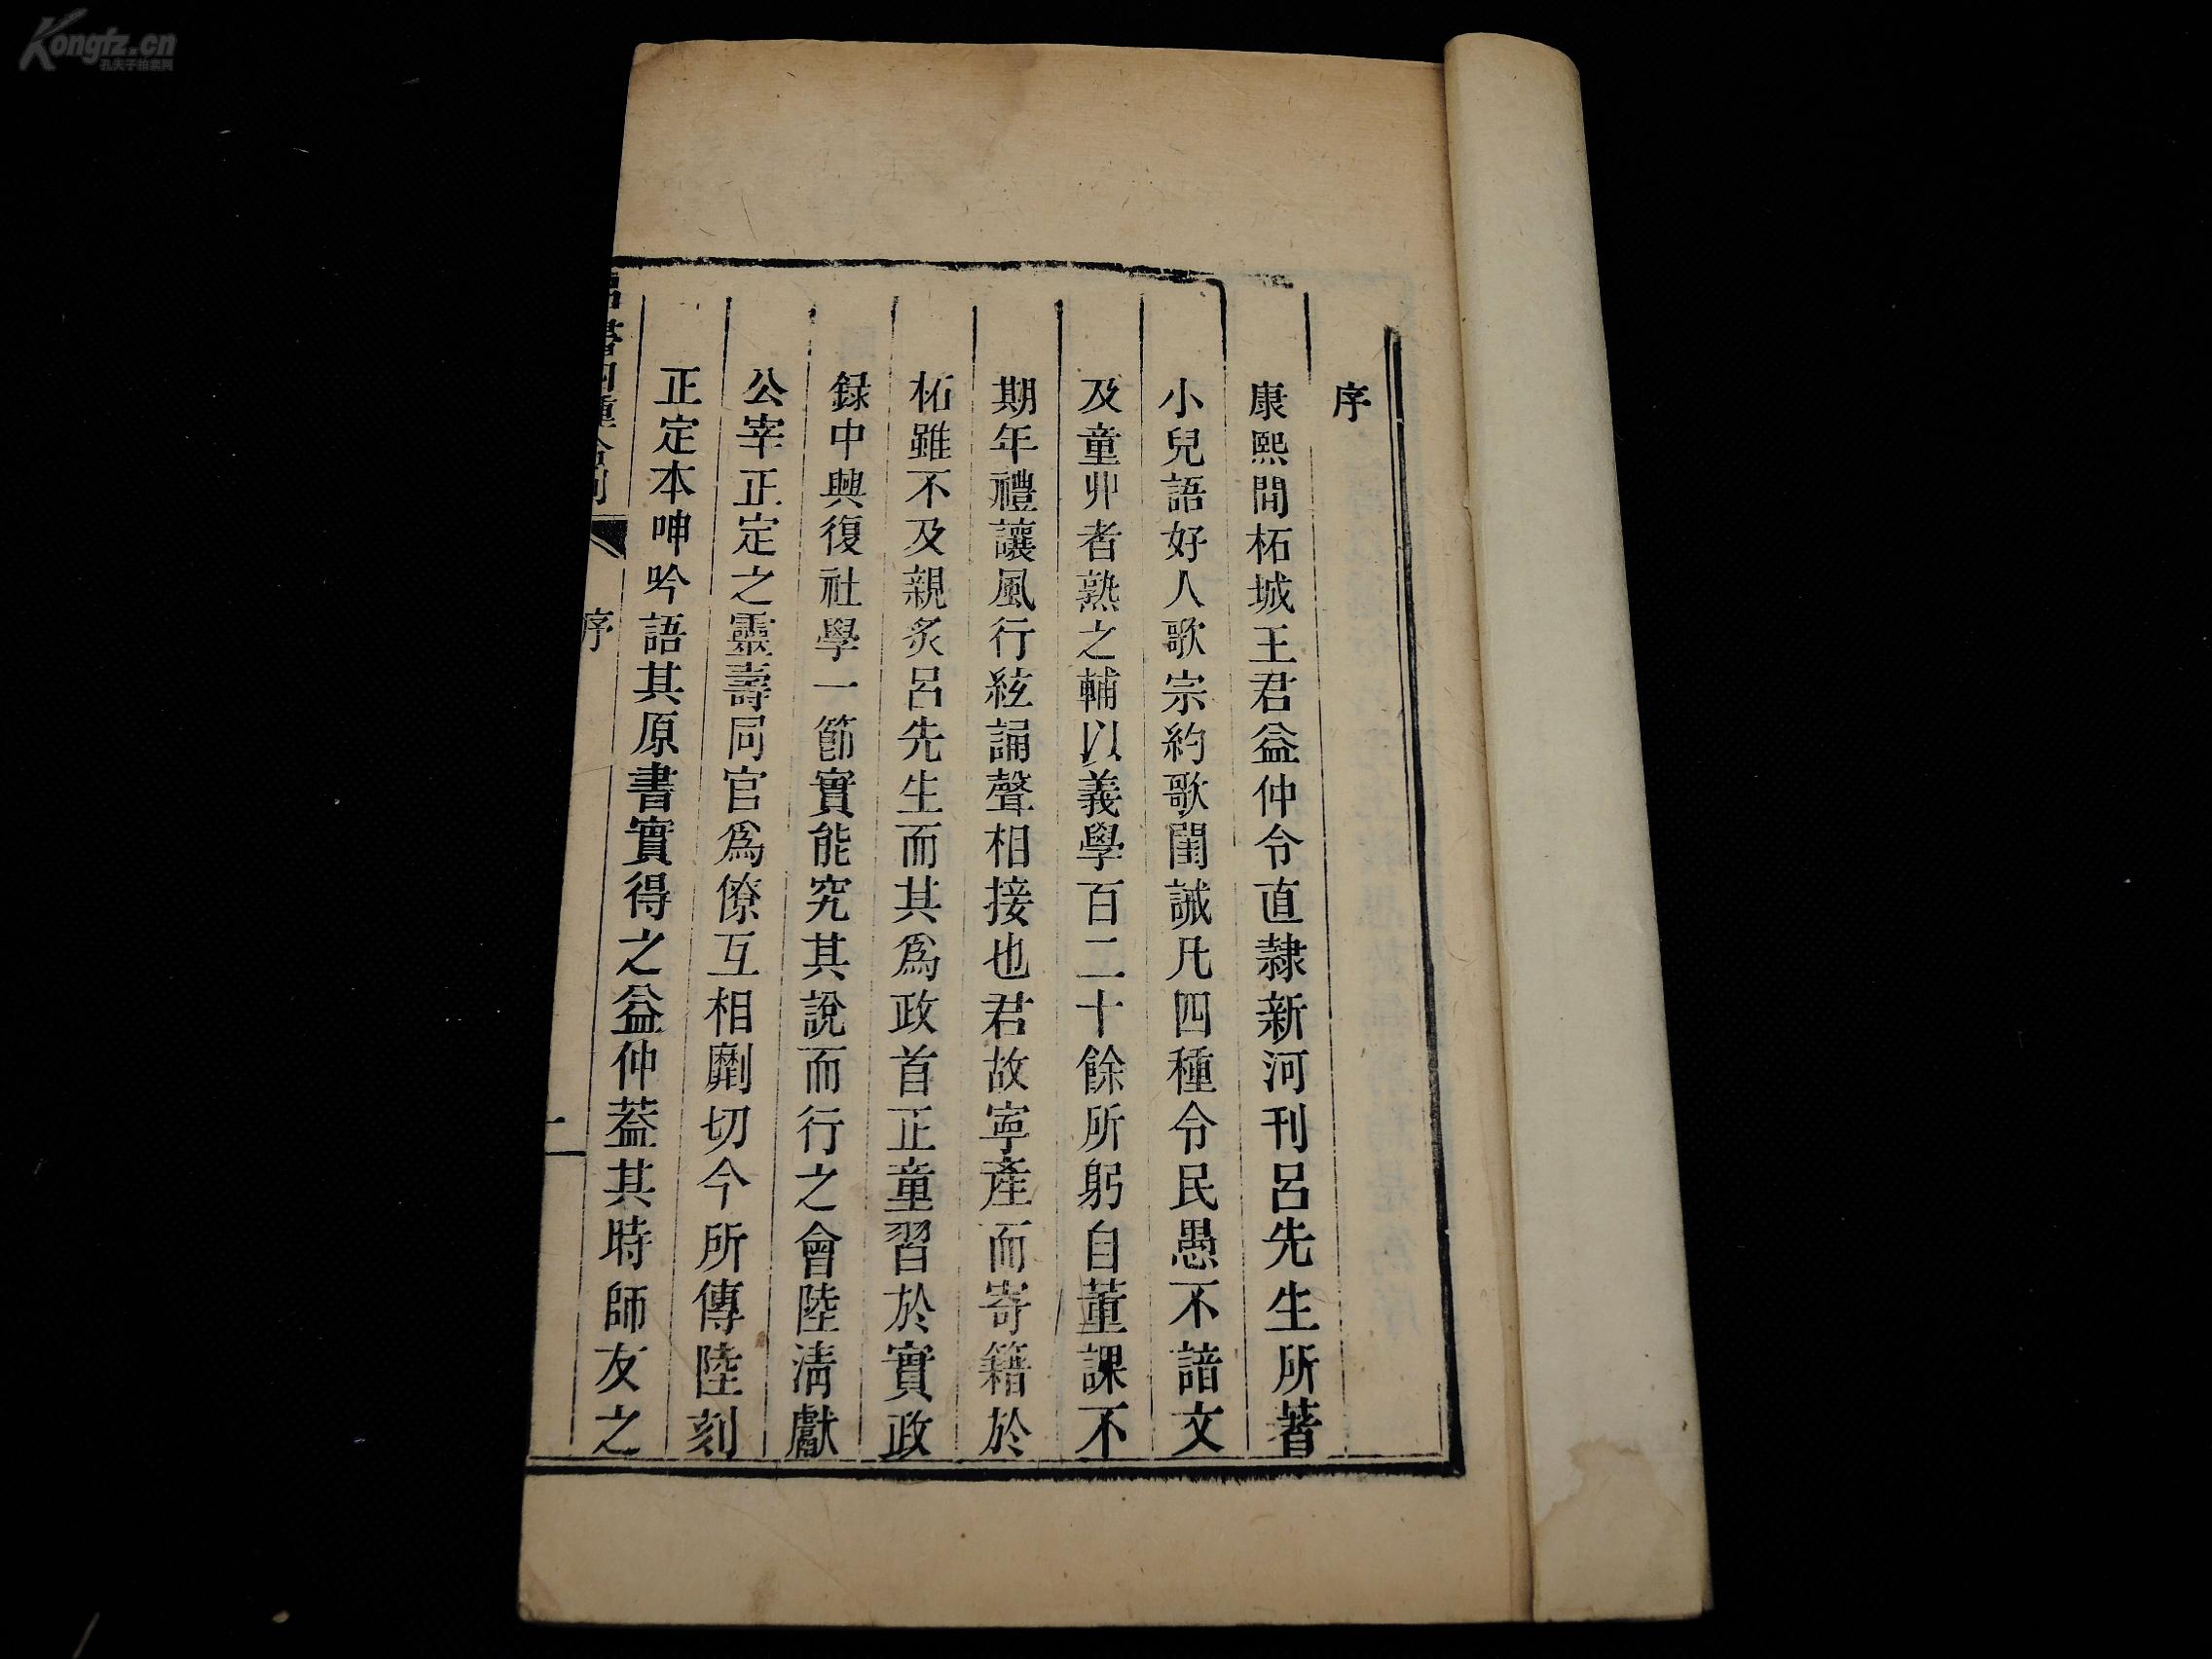 序
康熙間柘城王君益仲令直隸新河刊呂先生所著
小兒語好人歌宗約歌閨誡凡四種令民愚不諳文
及童丱者熟之輔以義學百二十餘所躬自董課不
期年禮讓風行絃誦聲相接也君故寧產而寄籍於
柘雖不及親炙呂先生而其爲政首正童習於實政
録中興復社學一節實能究其說而行之會陸淸獻
公宰正定之靈壽同官爲僚互相劘切今所傳陸刻
正定本呻吟語其原書實得之益仲葢其時師友之
書四種合刻
序
二
Kongfz.cn
孔夫子拍卖网